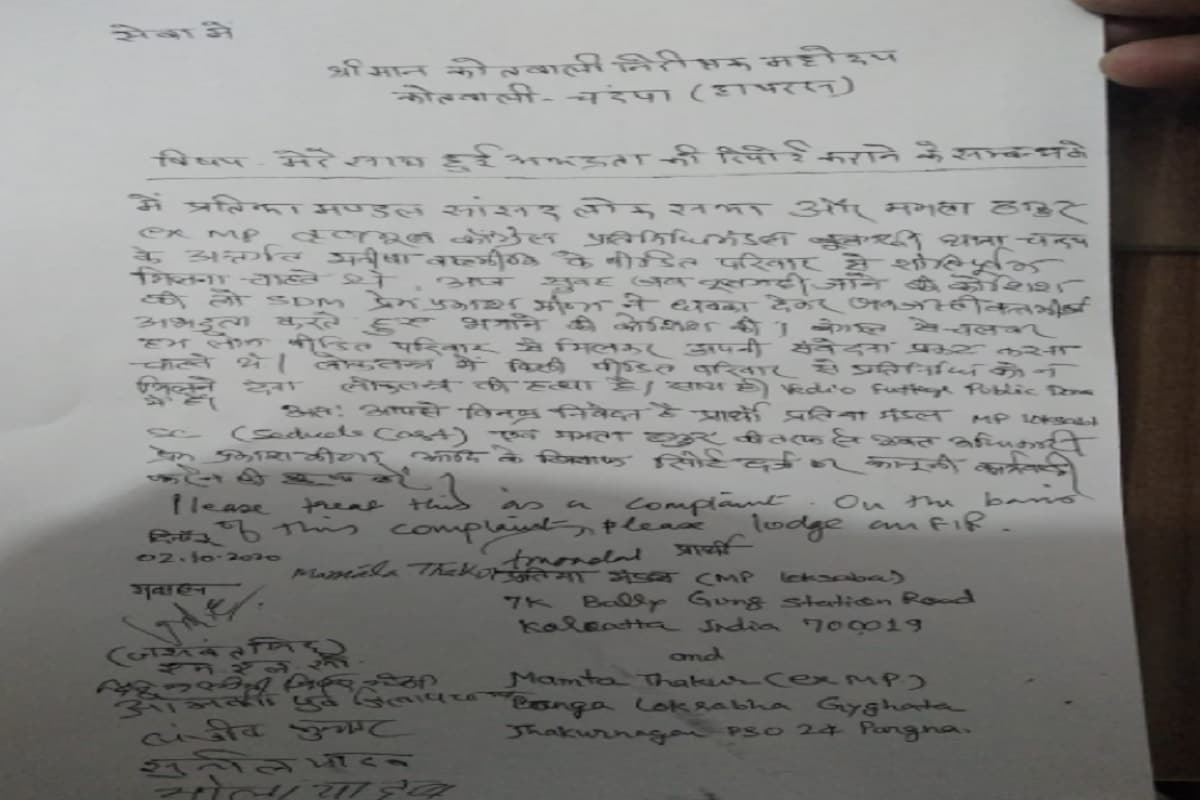 सेवा में
श्रीमान कोतवाली निरीक्षक महोदय
कोतवाली - चंदपा (हाथरस)
विषय - मेरे साथ हुई अभद्रता की रिपोर्ट कराने के सम्बन्ध
में प्रतिमा मण्डल सांसद लोक सभा और ममता ठाकुर
ex MP तृणमूल कॉंग्रेस प्रतिनिधिमंडल थाना चंदपा
के अन्तर्गत मनीषा वाल्मीकि के पीडित परिवार से शांतिपूर्वक
मिलना चाहते थे. आज सुबह जब जाने की कोशिश
की तो SDM प्रेम प्रकाश मीणा ने धक्का देकर
अभद्रता करते हुए भगाने की कोशिश की। बंगाल से चलकर
हम लोग पीडित परिवार से मिलकर अपनी संवेदना प्रकट करना
चाहते थे। लोकतन्त्र में किसी पीडित परिवार से प्रतिनिधि को न
मिलने देना लोकतन्त्र की हत्या है। साथ ही Vedio Futtege Public Dome
में है।
अतः आपसे विनम्र निवेदन है प्रार्थी प्रतिमा मंडल MP Loksabha
SC (Seducle Cast) एवं ममता ठाकुर की तरफ से उक्त अधिकारी
प्रेम प्रकाश मीणा आदि के खिलाफ रिपोर्ट दर्ज कर कानूनी कार्यवाही
करने की
Please treat this as a complaint. On the basis
of this complaint, please lodge an FIR.
दिनाँक
02.10.2020
प्रार्थी
Mamata Thakur प्रतिमा मंडल (MP Loksaba)
गवाहन
7K Bally Gung Station Road
Kolcatta India 700019
(जसवंत सिंह)
and
Mamta Thakur (ex MP)
Banga Loksabha Gyghata
Thakurnagar PSO 24 Pargna.
संजीव कुमार
सुनील यादव
भोला यादव